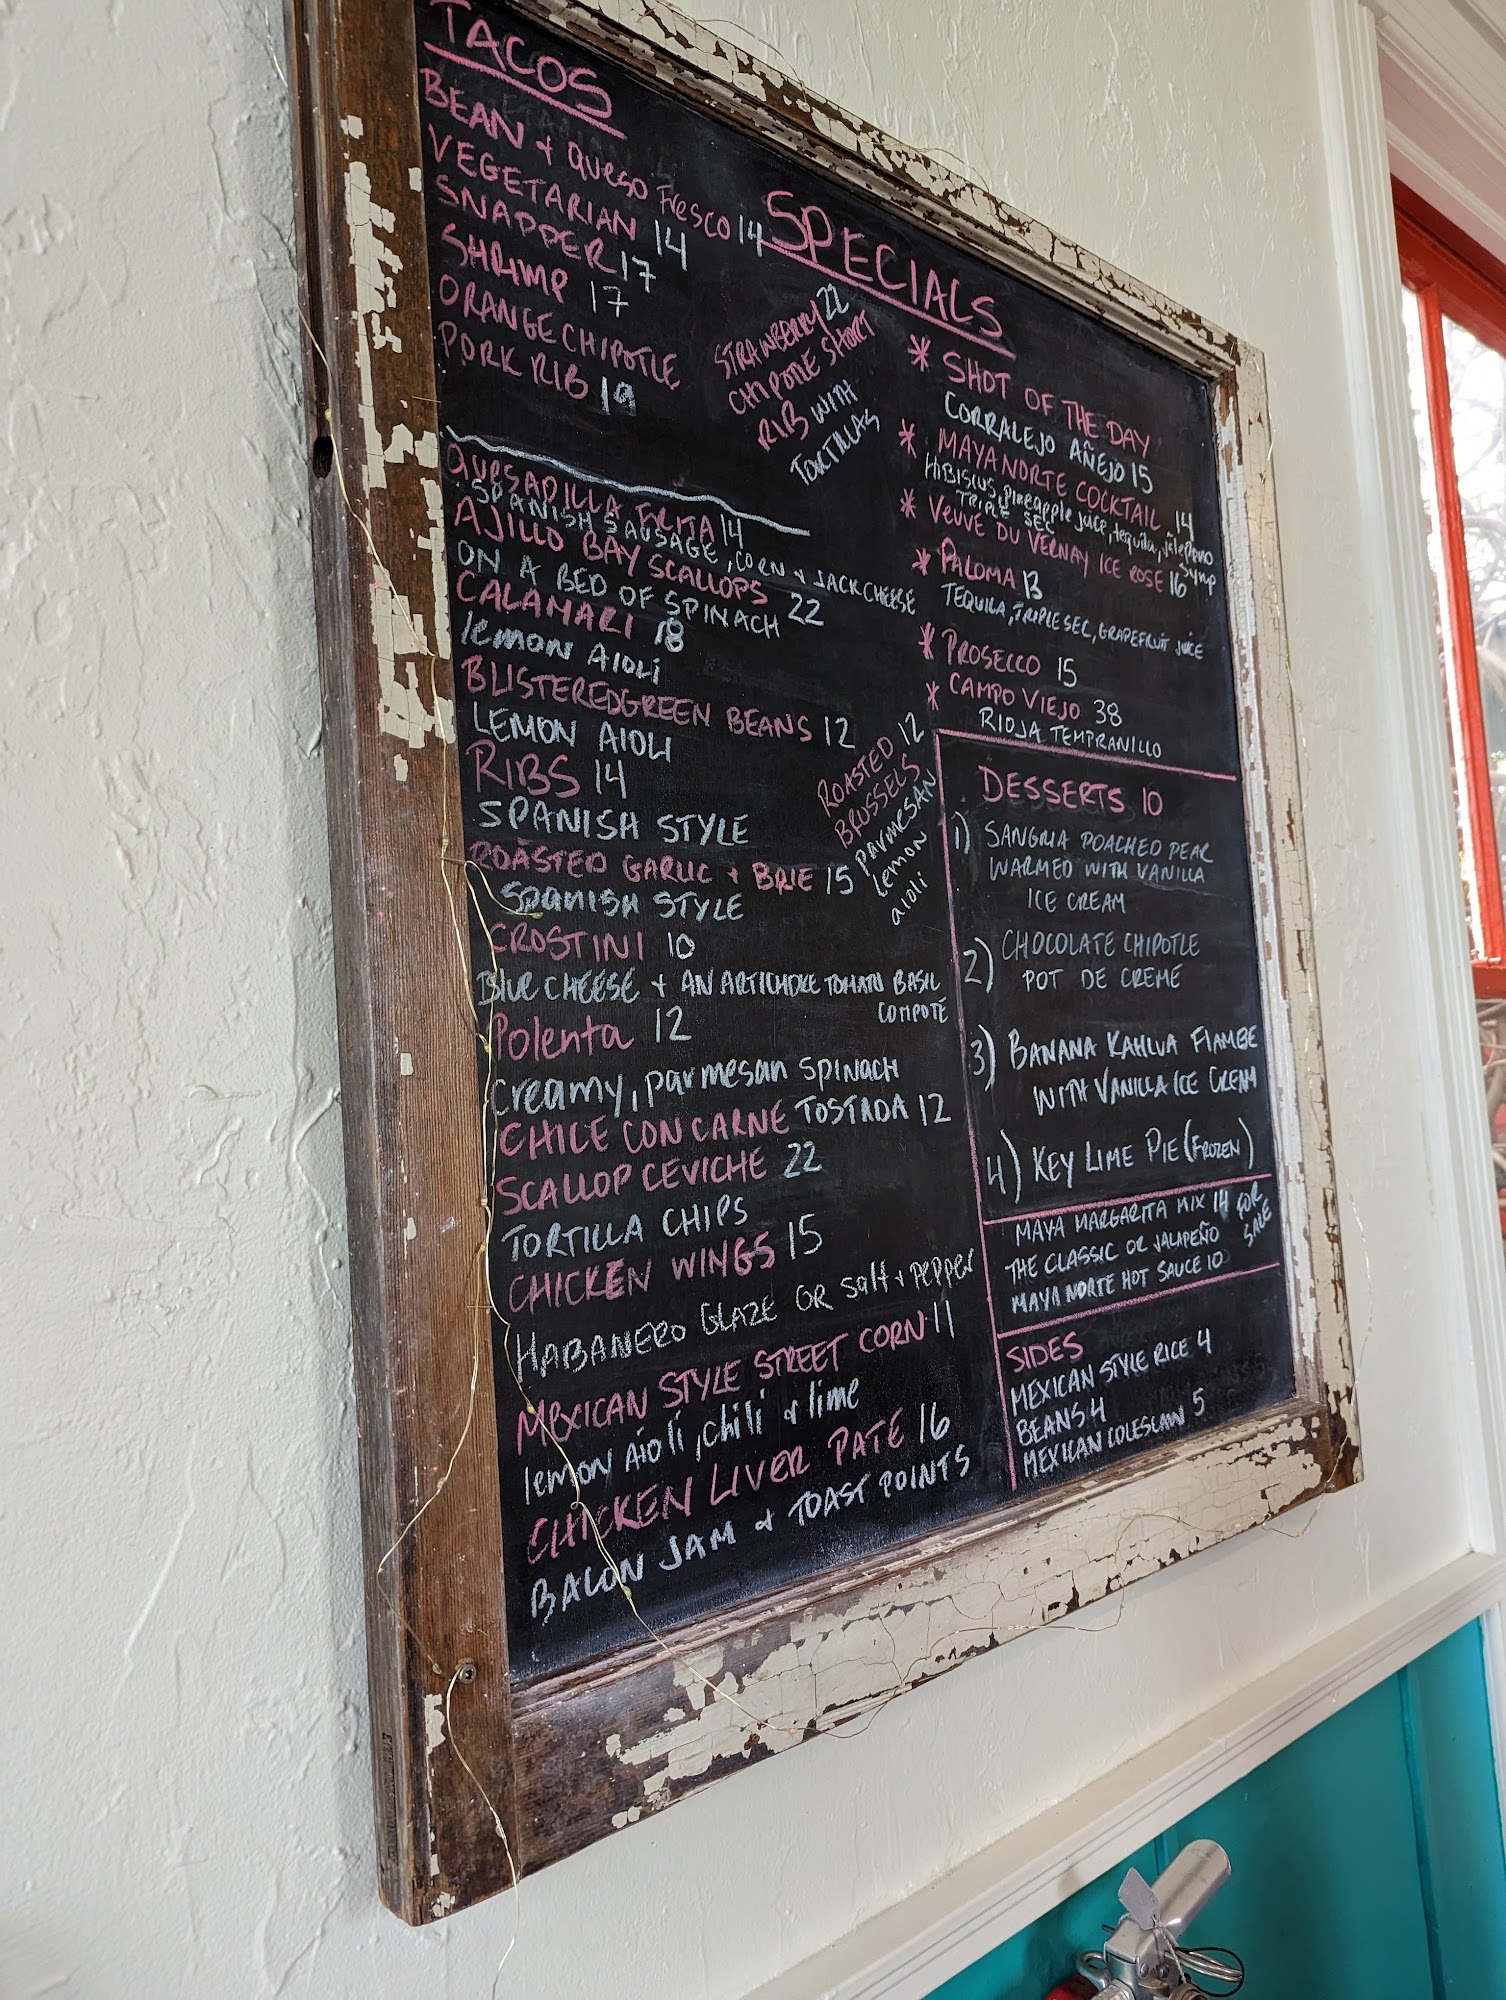 TACOS
BEAN + QUESO FRESCO 14
VEGETARIAN 14
SNAPPER 17
SHRIMP 17
ORANGE CHIPOTLE
PORK RIB 19
SPECIALS
STRAWBERRY 22
CHIPOTLE SHORT
RIB WITH
TORTILLAS
QUESADILLA FRITA 14
SPANISH SAUSAGE, CORN + JACK CHEESE
AJILLO BAY SCALLOPS 22
ON A BED OF SPINACH
CALAMARI 18
lemon AIOLI
BLISTERED GREEN BEANS 12
LEMON AIOLI
RIBS 14
SPANISH STYLE
ROASTED GARLIC + BRIE 15
SPANISH STYLE
CROSTINI 10
BLUE CHEESE + AN ARTICHOKE TOMATO BASIL
COMPOTE
Polenta 12
creamy, parmesan SPINACH
CHILE CON CARNE TOSTADA 12
SCALLOP CEVICHE 22
TORTILLA CHIPS
CHICKEN WINGS 15
HABANERO GLAZE OR Salt + PEPPER
MEXICAN STYLE STREET CORN 11
lemon AIOLI, chili + lime
CHICKEN LIVER PATE 16
BACON JAM + TOAST POINTS
ROASTED 12
BRUSSELS
PARMESAN
lemon
aioli
* SHOT OF THE DAY
CORRALEJO AÑEJO 15
* MAYA NORTE COCKTAIL 14
HIBISCUS, pineapple juice, tequila, jalepeno
TRIPLE SEC Symp
* VEUVE DU VERNAY ICE ROSE 16
* PALOMA 13
TEQUILA, TRIPLE SEC, GRAPEFRUIT JUICE
* PROSECCO 15
* CAMPO VIEJO 38
RIOJA TEMPRANILLO
DESSERTS 10
1) SANGRIA POACHED PEAR
WARMED WITH VANILLA
ICE CREAM
2) CHOCOLATE CHIPOTLE
POT DE CREME
3) BANANA KAHLUA FLAMBE
WITH VANILLA ICE CREAM
4) KEY LIME PIE (FROZEN)
MAYA MARGARITA MIX 14 FOR
SALE
THE CLASSIC OR JALAPEÑO
MAYA NORTE HOT SAUCE 10
SIDES
MEXICAN STYLE RICE 4
BEANS 4
MEXICAN COLESLAW 5